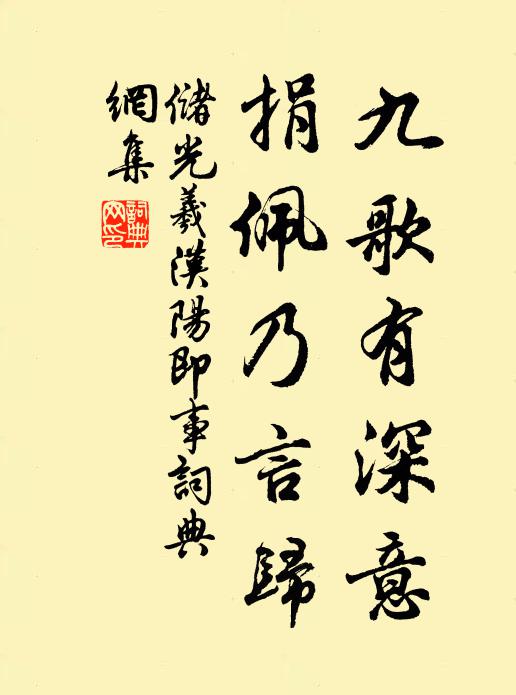 九歌有深意
捐佩乃言歸
儲光羲漢陽即事詞典
網集
詞典
网印